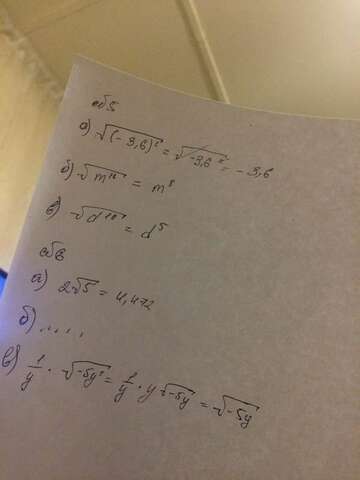 а) √(-3,6)² = √-3,6² = -3,6
б) √m¹⁶ = m⁸
в) √d¹⁰ = d⁵
а) 2√5 = 4,472
б) ....
в) 1/y · √-5y³ = 1/y · y√-5y = √-5y